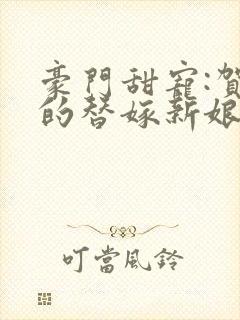 豪門甜寵:賀
的替嫁新娘
叮當風鈴